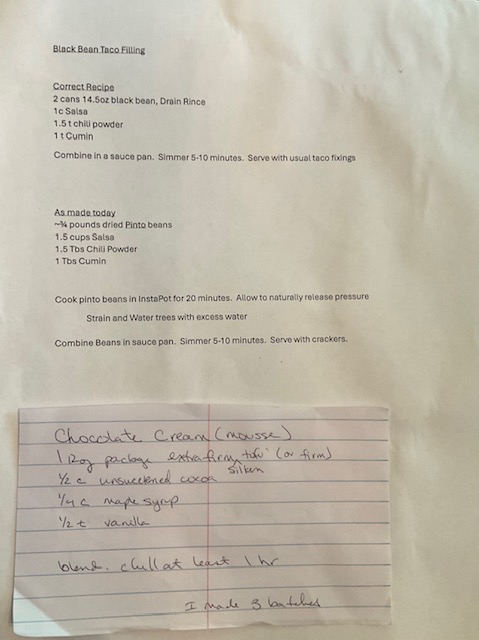 Black Bean Taco Filling
Correct Recipe
2 cans 14.5oz black bean, Drain Rince
1c Salsa
1.5 t chili powder
1 t Cumin
Combine in a sauce pan. Simmer 5-10 minutes. Serve with usual taco fixings
As made today
~¾ pounds dried Pinto beans
1.5 cups Salsa
1.5 Tbs Chili Powder
1 Tbs Cumin
Cook pinto beans in InstaPot for 20 minutes. Allow to naturally release pressure
Strain and Water trees with excess water
Combine Beans in sauce pan. Simmer 5-10 minutes. Serve with crackers.
Chocolate Cream (mousse)
1 12oz package extra firm tofu (or firm)
silken
½ c unsweetened cocoa
¼ c maple syrup
½ t vanilla
blend. chill at least 1 hr
I made 3 batches